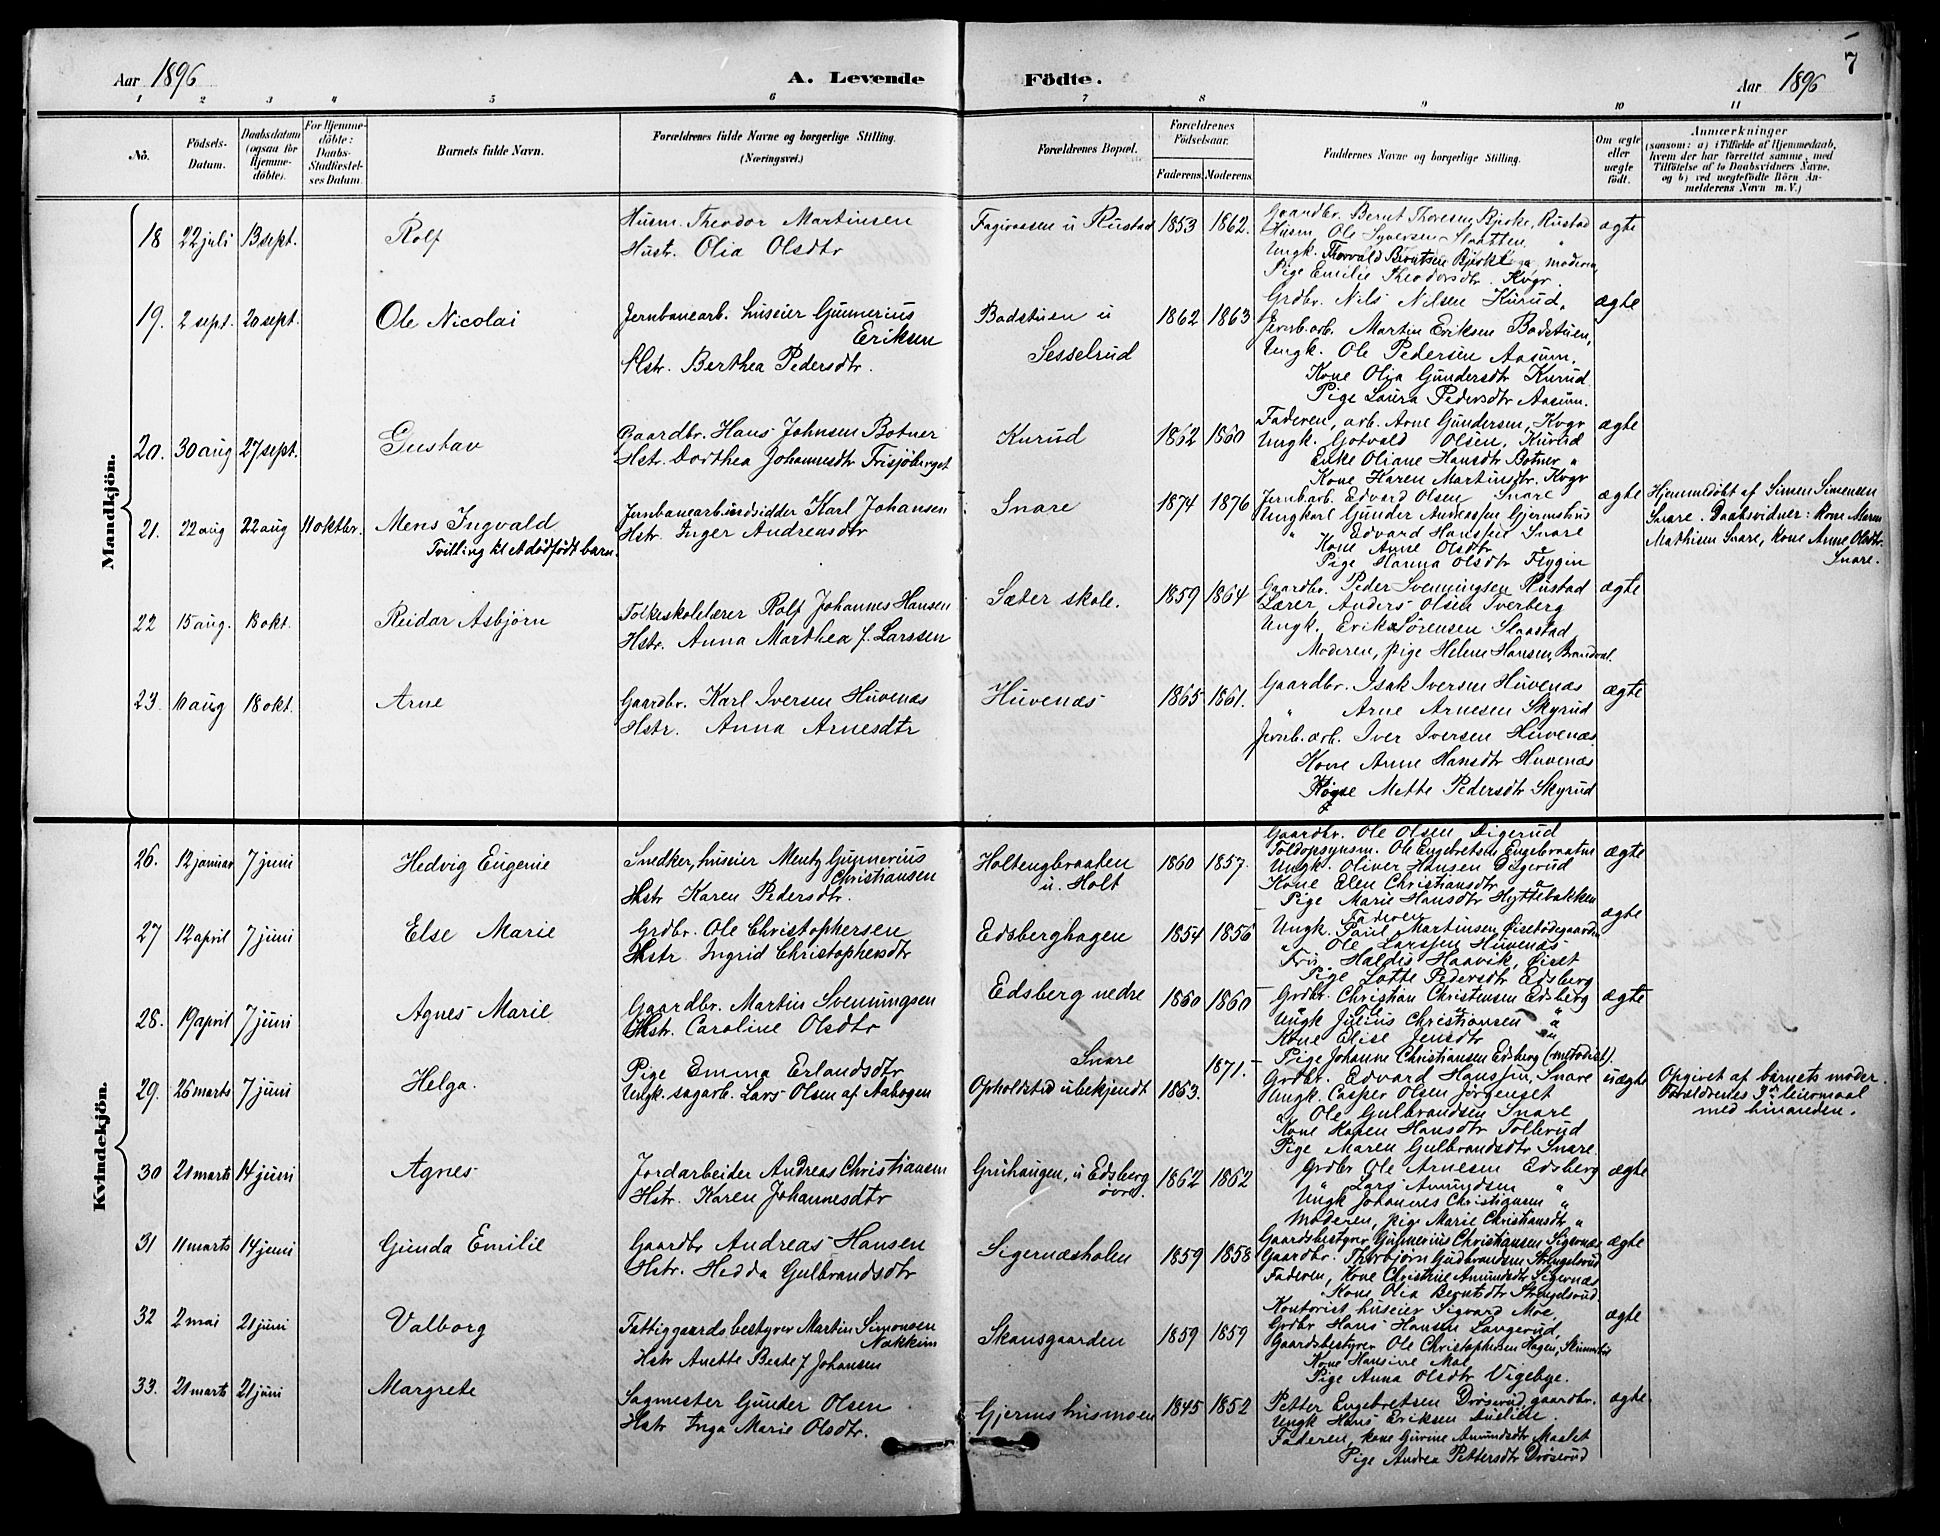 7
Aar 1896
A. Levende Födte.
Aar 1896
1 2 3 4 5 6 7 8 9 10 11
Nö.
Födsels-Datum.
Daabsdatum (ogsaa for Hjemme-döbte).
For Hjemme-döbte: Daabs-Stadfæstel-ses Datum.
Barnets fulde Navn.
Forældrenes fulde Navne og borgerlige Stilling.
(Næringsvei.)
Forældrenes Bopæl.
Forældrenes Födselsaar.
Faderens. Moderens.
Faddernes Navne og borgerlige Stilling.
Om ægte eller uægte födt.
Anmærkninger
(saasom: a) i Tilfælde af Hjemmedaab, hvem der har forrettet samme, med Tilföielse af to Daabsvidners Navne, og b) ved uægtefödte Börn An-melderens Navn m. V.)
Mandkjön.
18 22 juli 13 sept. Rolf
Husm. Theodor Martinsen
Hustr. Olia Olsdtr
Fagivaasen u Rustad 1853 1862.
Gaardbr. Bernt Thoresen Bjerke, Rustad
Husm Ole Syversen Slaatten "
Ungk. Thorvald Berntsen Bjerke, moderen
Pige Emilie Theodorsdtr. Kvgr.
ægte
19. 2 sept. 20 sept. Ole Nicolai
Jernbanearb. huseier Gunnerius
Eriksen
Hstr. Berthea Pedersdtr.
Badstuen u
Sesselrud
1862 1863
Grdbr. Nils Nilsen Kurud,
Jernb.arb. Martin Eriksen Badstuen,
Ungk. Ole Pedersen Aasum.
Kone Olia Gundersdtr Kurud
Pige Laura Pedersdtr Aasum.
ægte
20. 30 aug 27 sept. Gustav
Gaardbr. Hans Johnsen Botner
Hstr. Dorthea Johannesdtr Frisjöberget
Kurud 1862 1860
Faderen, arb. Arne Gundersen, Kvgr
Ungk. Gotvald Olsen, Kurud
Enke Oliane Hansdtr Botner "
Kone Karen Martinsdtr. Kvgr
ægte
21. 22 aug 22 aug 11 oktbr. Mens Ingvald
Tvilling til et dödfödt barn.
Jernbanearb. indsidder Karl Johansen
Hstr. Inger Andreasdtr
Snare 1874 1876
Jernb.arb. Edvard Olsen Snare
Ungkarl Gunder Andreassen Gjermshus
" Edvard Hanssen Snare
Kone Anne Olsdtr "
Pige Hanna Olsdtr Flygin
ægte
Hjemmedöbt af Simen Simensen
Snare. Daabsvidner: Kone Maren
Mathisen Snare, Kone Anne Olsdtr.
Snare.
22 15 aug. 18 okt. Reidar Asbjørn
Folkeskolelærer Rolf Johannes Hansen
Hstr. Anna Marthea f. Larssen
Sæter skole. 1859 1864
Gaardbr. Peder Svenningsen Rustad
Lærer Anders Olsen Sverberg
Ungk. Erik Sørensen Slaastad
Moderen, pige Helene Hansen, Brandval.
ægte
23. 10 aug 18 okt. Arne
Gaardbr. Karl Iversen Huvenæs
Hstr. Anna Arnesdtr
Huvenæs 1865 1861.
Gaardbr. Isak Iversen Huvenæs
" Arne Arnesen Skyrud
Jernb.arb. Iver Iversen Huvenæs
Kone Anne Hansdtr Huvenæs
Pige Mette Pedersdtr Skyrud
ægte
Kvindekjön.
26. 12 januar 7 juni Hedvig Eugenie
Snedker, huseier Mentz Gunnerius
Christiansen
Hstr Karen Pedersdtr.
Holtengbraaten
u. Holt
1860 1857.
Gaardbr. Ole Olsen Digerud
Toldopsynsm. Ole Engebretsen Engebraaten
Ungk. Oliver Hansen Digerud
Kone Elen Christiansdtr "
Pige Marie Hansdtr Hyttebakken
ægte
27 12 april 7 juni Else Marie
Grdbr. Ole Christophersen
Hstr Ingrid Christophersdtr
Edsberghagen 1854 1856
Faderen
Ungk. Paul Martinsen Øisetødegaarden
" Ole Larssen Huvenæs
Frk Haldis Haavik, Øiset
Pige Lotte Pedersdtr Edsberg
ægte
28. 19 april 7 juni Agnes Marie
Gaardbr. Martin Svenningsen
Hstr. Caroline Olsdtr
Edsberg nedre 1860 1860
Grdbr. Christian Christensen Edsberg
Ungk Julius Christiansen "
Kone Elise Jensdtr "
Pige Johanne Christiansen Edsberg (metodist).
ægte
29. 26 marts 7 juni Helga.
Pige Emma Erlandsdtr
Ungk. sagarb. Lars Olsen af Aabogen
Snare
Opholdsted ubekjendt
1863. 1871.
Grdbr. Edvard Hanssen, Snare
Ungk. Casper Olsen Jörgenset
" Ole Gulbrandsen Snare
Kone Karen Hansdtr Tollerud
Pige Maren Gulbrandsdtr Snare.
uægte
Opgivet af barnets moder.
Forældrenes 3die leiermaal
med hinanden.
30 21 marts 14 juni Agnes
Jordarbeider Andreas Christiansen
Hstr. Karen Johannesdtr
Gruhaugen, u Edsberg
övre.
1862 1862
Grdbr Ole Arnesen Edsberg
" Lars Amundsen "
Ungk Johannes Christiansen "
Moderen, pige Marie Christiansdtr "
ægte
31 11 marts 14 juni Gunda Emilie
Gaardbr Andreas Hansen
Hstr. Hedda Gulbrandsdtr
Sigernæsholen 1859 1858
Gaardsbestyrer Gunnerius Christiansen Sigernæs
Gaardbr. Thorbjørn Gudbrandsen Strengelsrud
Faderen, Kone Christine Amundsdtr Sigernæs
Kone Olia Berntsdtr Strengelsrud
ægte
32 2 mai 21 juni Valborg
Fattiggaardsbestyrer Martin Simonsen
Nakkim
Hstr Anette Beate f Johansen
Skansgaarden 1859 1859
Kontorist huseier Sigvard Moe
Grdbr Hans Hansen Langerud,
Gaardsbestyrer Ole Christophersen Hagen,
Kone Hansine Mol
Pige Anna Olsdtr Vigebye.
ægte
33. 21 marts 21 juni Margrete
Sagmester Gunder Olsen
Hstr Inga Marie Olsdtr.
Gjermshusmoen 1845 1852
Petter Engebretsen Drösrud, gaardbr.
Ungk Hans Eriksen
Faderen, kone Gurine Amundsdtr Maalet
Pige Andrea Pettersdtr Drösrud
ægte